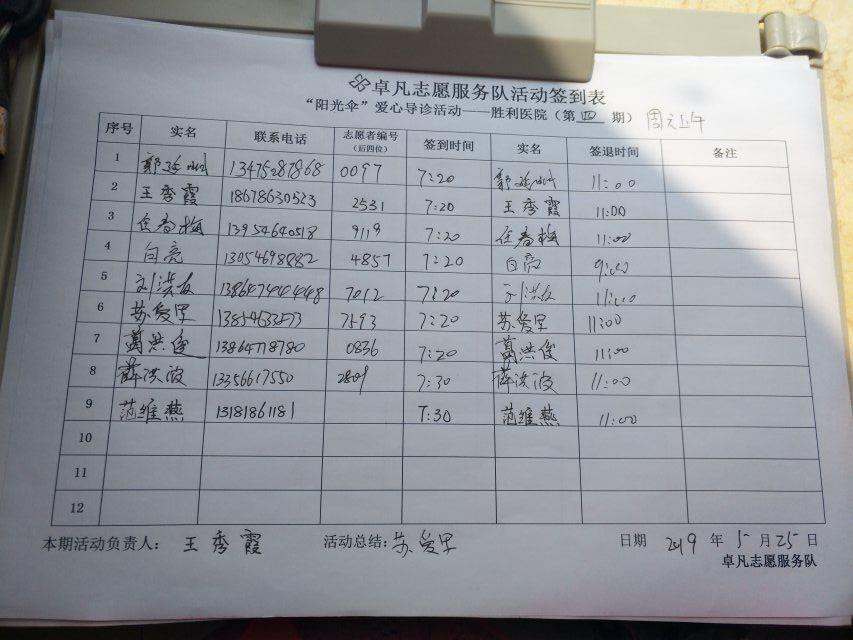 卓凡志愿服务队活动签到表
“阳光伞”爱心导诊活动——胜利医院（第四期） 周六上午
序号 实名 联系电话 志愿者编号（后四位） 签到时间 实名 签退时间 备注
1 13475287868 0097 7:20 11:00
2 王秀霞 18678630523 2531 7:20 王秀霞 11:00
3 任春梅 13954640518 9119 7:20 任春梅 11:00
4 白亮 13054698882 4857 7:20 白亮 9:00
5 7012 7:20 11:00
6 苏爱军 7:20 苏爱军 11:00
7 葛洪俊 13864778780 0836 7:20 葛洪俊 11:00
8 薛洪波 13356617550 7:30 薛洪波 11:00
9 范维燕 13181861181 7:30 范维燕 11:00
10
11
12
本期活动负责人： 王秀霞 活动总结: 苏爱军 日期 2019 年 5 月 25 日
卓凡志愿服务队